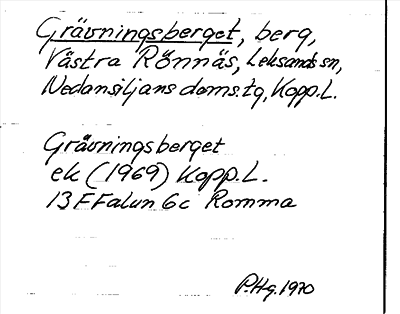 Grävningsberget, berg,
Västra Rönnäs, Leksands sn,
Nedansiljans doms.tg, Kopp.L.
Grävningsberget
ek (1969) Kopp.L.
13F Falun 6c Romma
P.Hg. 1970